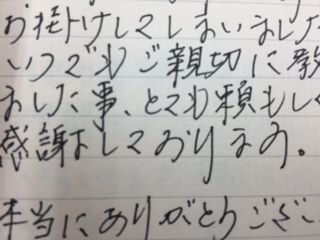 お掛けしてしまいました
いつでもご親切に教
ました事、とても頼もしく
感謝しております。
本当にありがとうござい